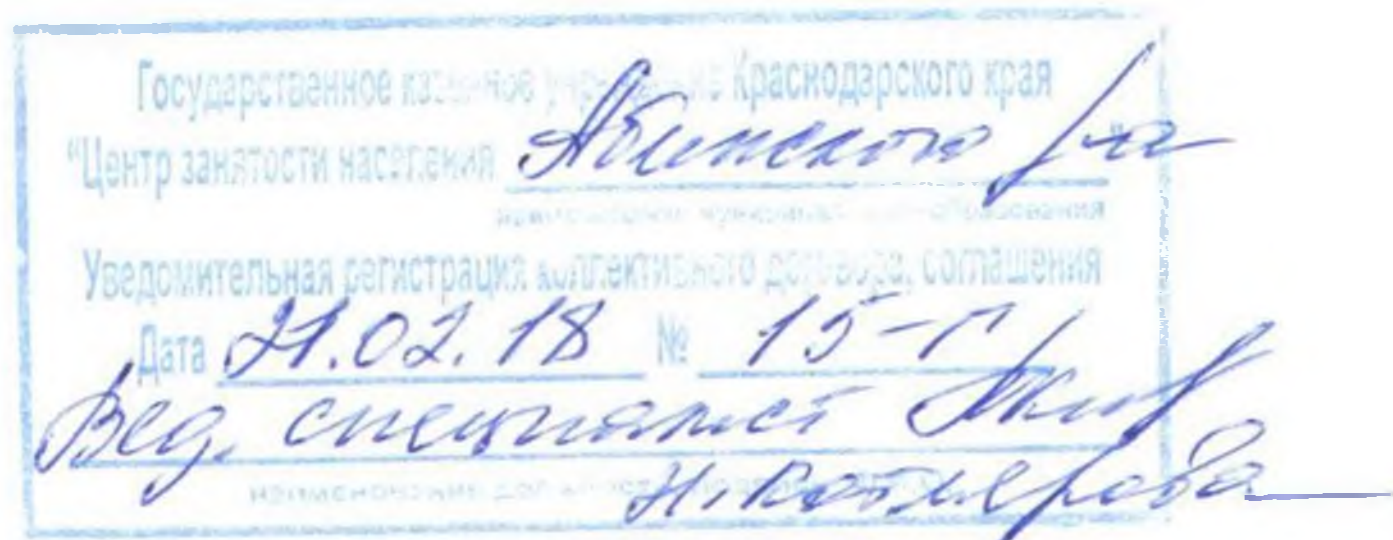 Государственное казенное учреждение Краснодарского края
"Центр занятости населения Абинского р-на"
наименование муниципального образования
Уведомительная регистрация коллективного договора, соглашения
Дата 21.02.18 № 15-Г
Вед. специалист
наименование